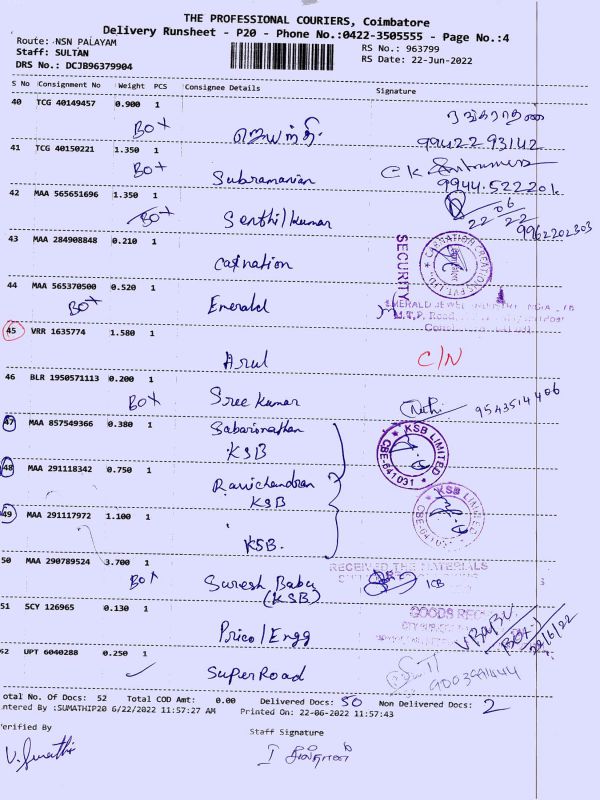 THE PROFESSIONAL COURIERS, Coimbatore
Delivery Runsheet - P20 - Phone No.:0422-3505555 - Page No.:4
Route: NSN PALAYAM
Staff: SULTAN
RS No.: 963799
DRS No.: DCJB96379904
RS Date: 22-Jun-2022
S No Consignment No Weight PCS Consignee Details Signature
40 TCG 40149457 0.900 1
BOX
99422 93142
41 TCG 40150221 1.350 1
BOX Subramanian
9944.522201
42 MAA 565651696 1.350 1
BOX Senthil kumar
22 06 22
9962202303
43 MAA 284908848 0.210 1
Catnation
SECURITY
44 MAA 565370500 0.520 1
BOX Emerald
45 VRR 1635774 1.580 1
Arul C/N
46 BLR 1950571113 0.200 1
BOX Sree kumar
9543514406
47 MAA 857549366 0.380 1
Sabarinathan
KSB
KSB LIMITED
CBE-641031
48 MAA 291118342 0.750 1
Ravichandran
KSB
KSB LIMITED
49 MAA 291117972 1.100 1
KSB.
50 MAA 290789524 3.700 1
BOX Suresh Babu
(KSB)
RECEIVED THE MATERIALS
ICB
51 SCY 126965 0.130 1
Pricol Engg
GOODS
V BABU
22/6/22
52 UPT 6040288 0.250 1
SuperRoad
otal No. Of Docs: 52 Total COD Amt: 0.00 Delivered Docs: 50 Non Delivered Docs: 2
ntered By :SUMATHIP20 6/22/2022 11:57:27 AM Printed On: 22-06-2022 11:57:43
erified By
Staff Signature
V. Sumathi